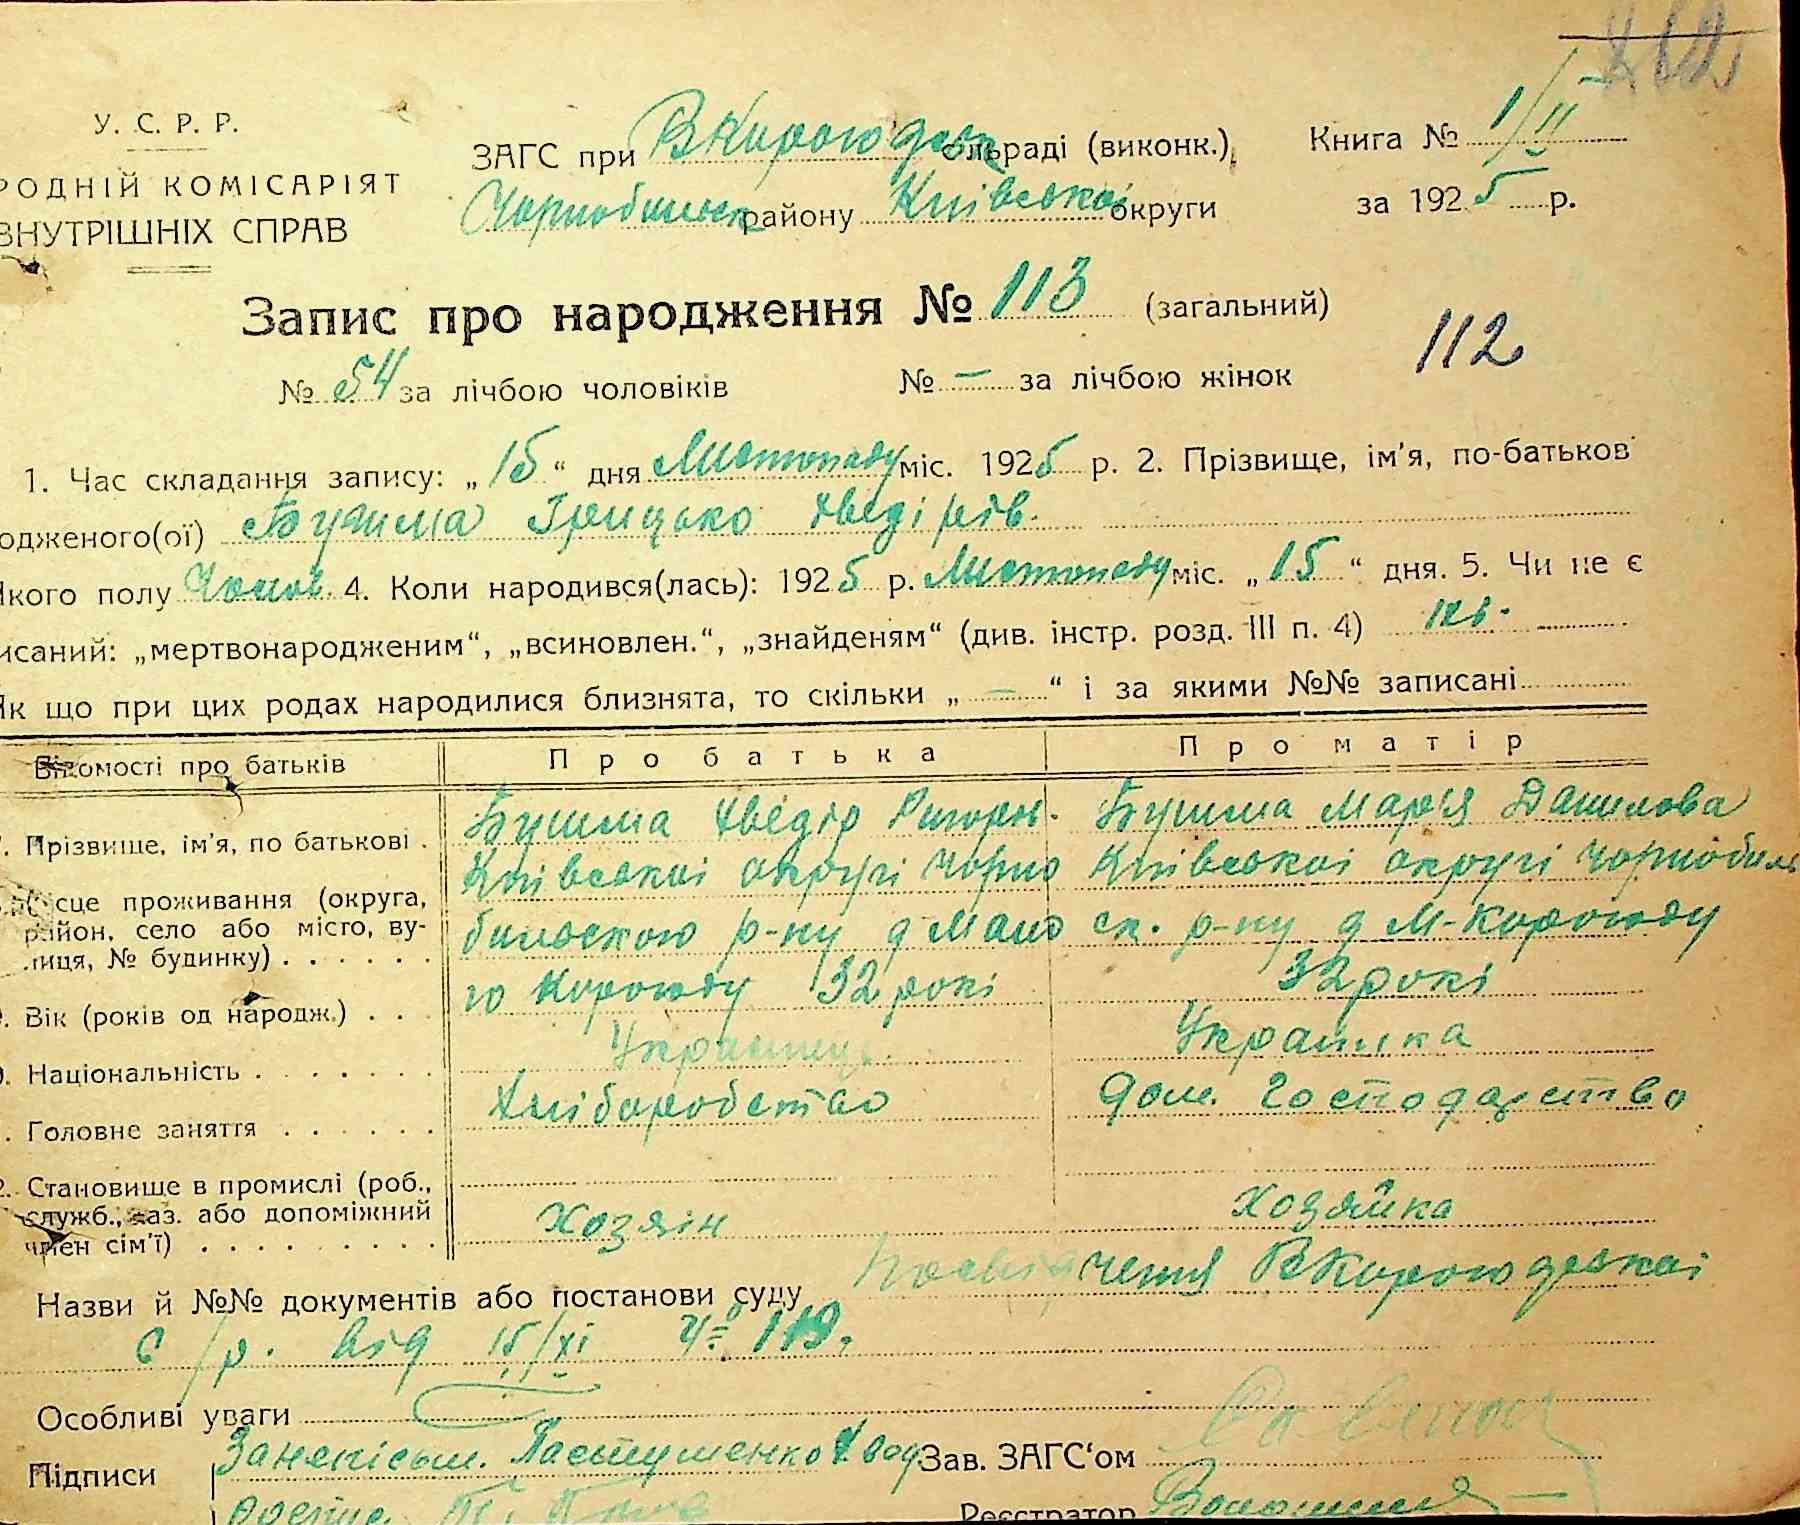 У. С. Р. Р.
РОДНІЙ КОМІСАРІЯТ
ВНУТРІШНІХ СПРАВ
ЗАГС при ВКорогодськ сільраді (виконк.)
Чорнобильськ району Київської округи
Книга № 1/II
за 1925 р.
Запис про народження № 113 (загальний)
112
№ 54 за лічбою чоловіків № — за лічбою жінок
1. Час складання запису: „15“ дня Листопаду міс. 1925 р. 2. Прізвище, ім'я, по-батьков
одженого(ої) Бушма Грицько Хведірів.
Якого полу Чолов. 4. Коли народився(лась): 1925 р. Листопаду міс. „15“ дня. 5. Чи не є
исаний: „мертвонародженим“, „всиновлен.“, „знайденям“ (див. інстр. розд. III п. 4)
Як що при цих родах народилися близнята, то скільки „—“ і за якими №№ записані
Відомості про батьків Про батька Про матір
Прізвище, ім'я, по батькові Бушма Хведір Григор. Бушма Мар'я Данилова
Місце проживання (округа, район, село або місто, вулиця, № будинку) Київськоі округі Чорно Київськоі округі Чорнобиль
бильского р-ну д Мало ск. р-ну д М-Корогоду
го Корогоду 32 рокі 32 рокі
Вік (років од народж.)
Національність Українець Украінка
Головне заняття Хліборобство Дом. Господарство
Становище в промислі (роб., служб., хаз. або допоміжний член сім'ї) Хозяін Хозяйка
Назви й №№ документів або постанови суду Посвідчення ВКорогодськоі
с/р. від 15/XI Ч= 119.
Особливі уваги
Підписи Пастушенко Хвед Зав. ЗАГС‘ом
Реєстратор